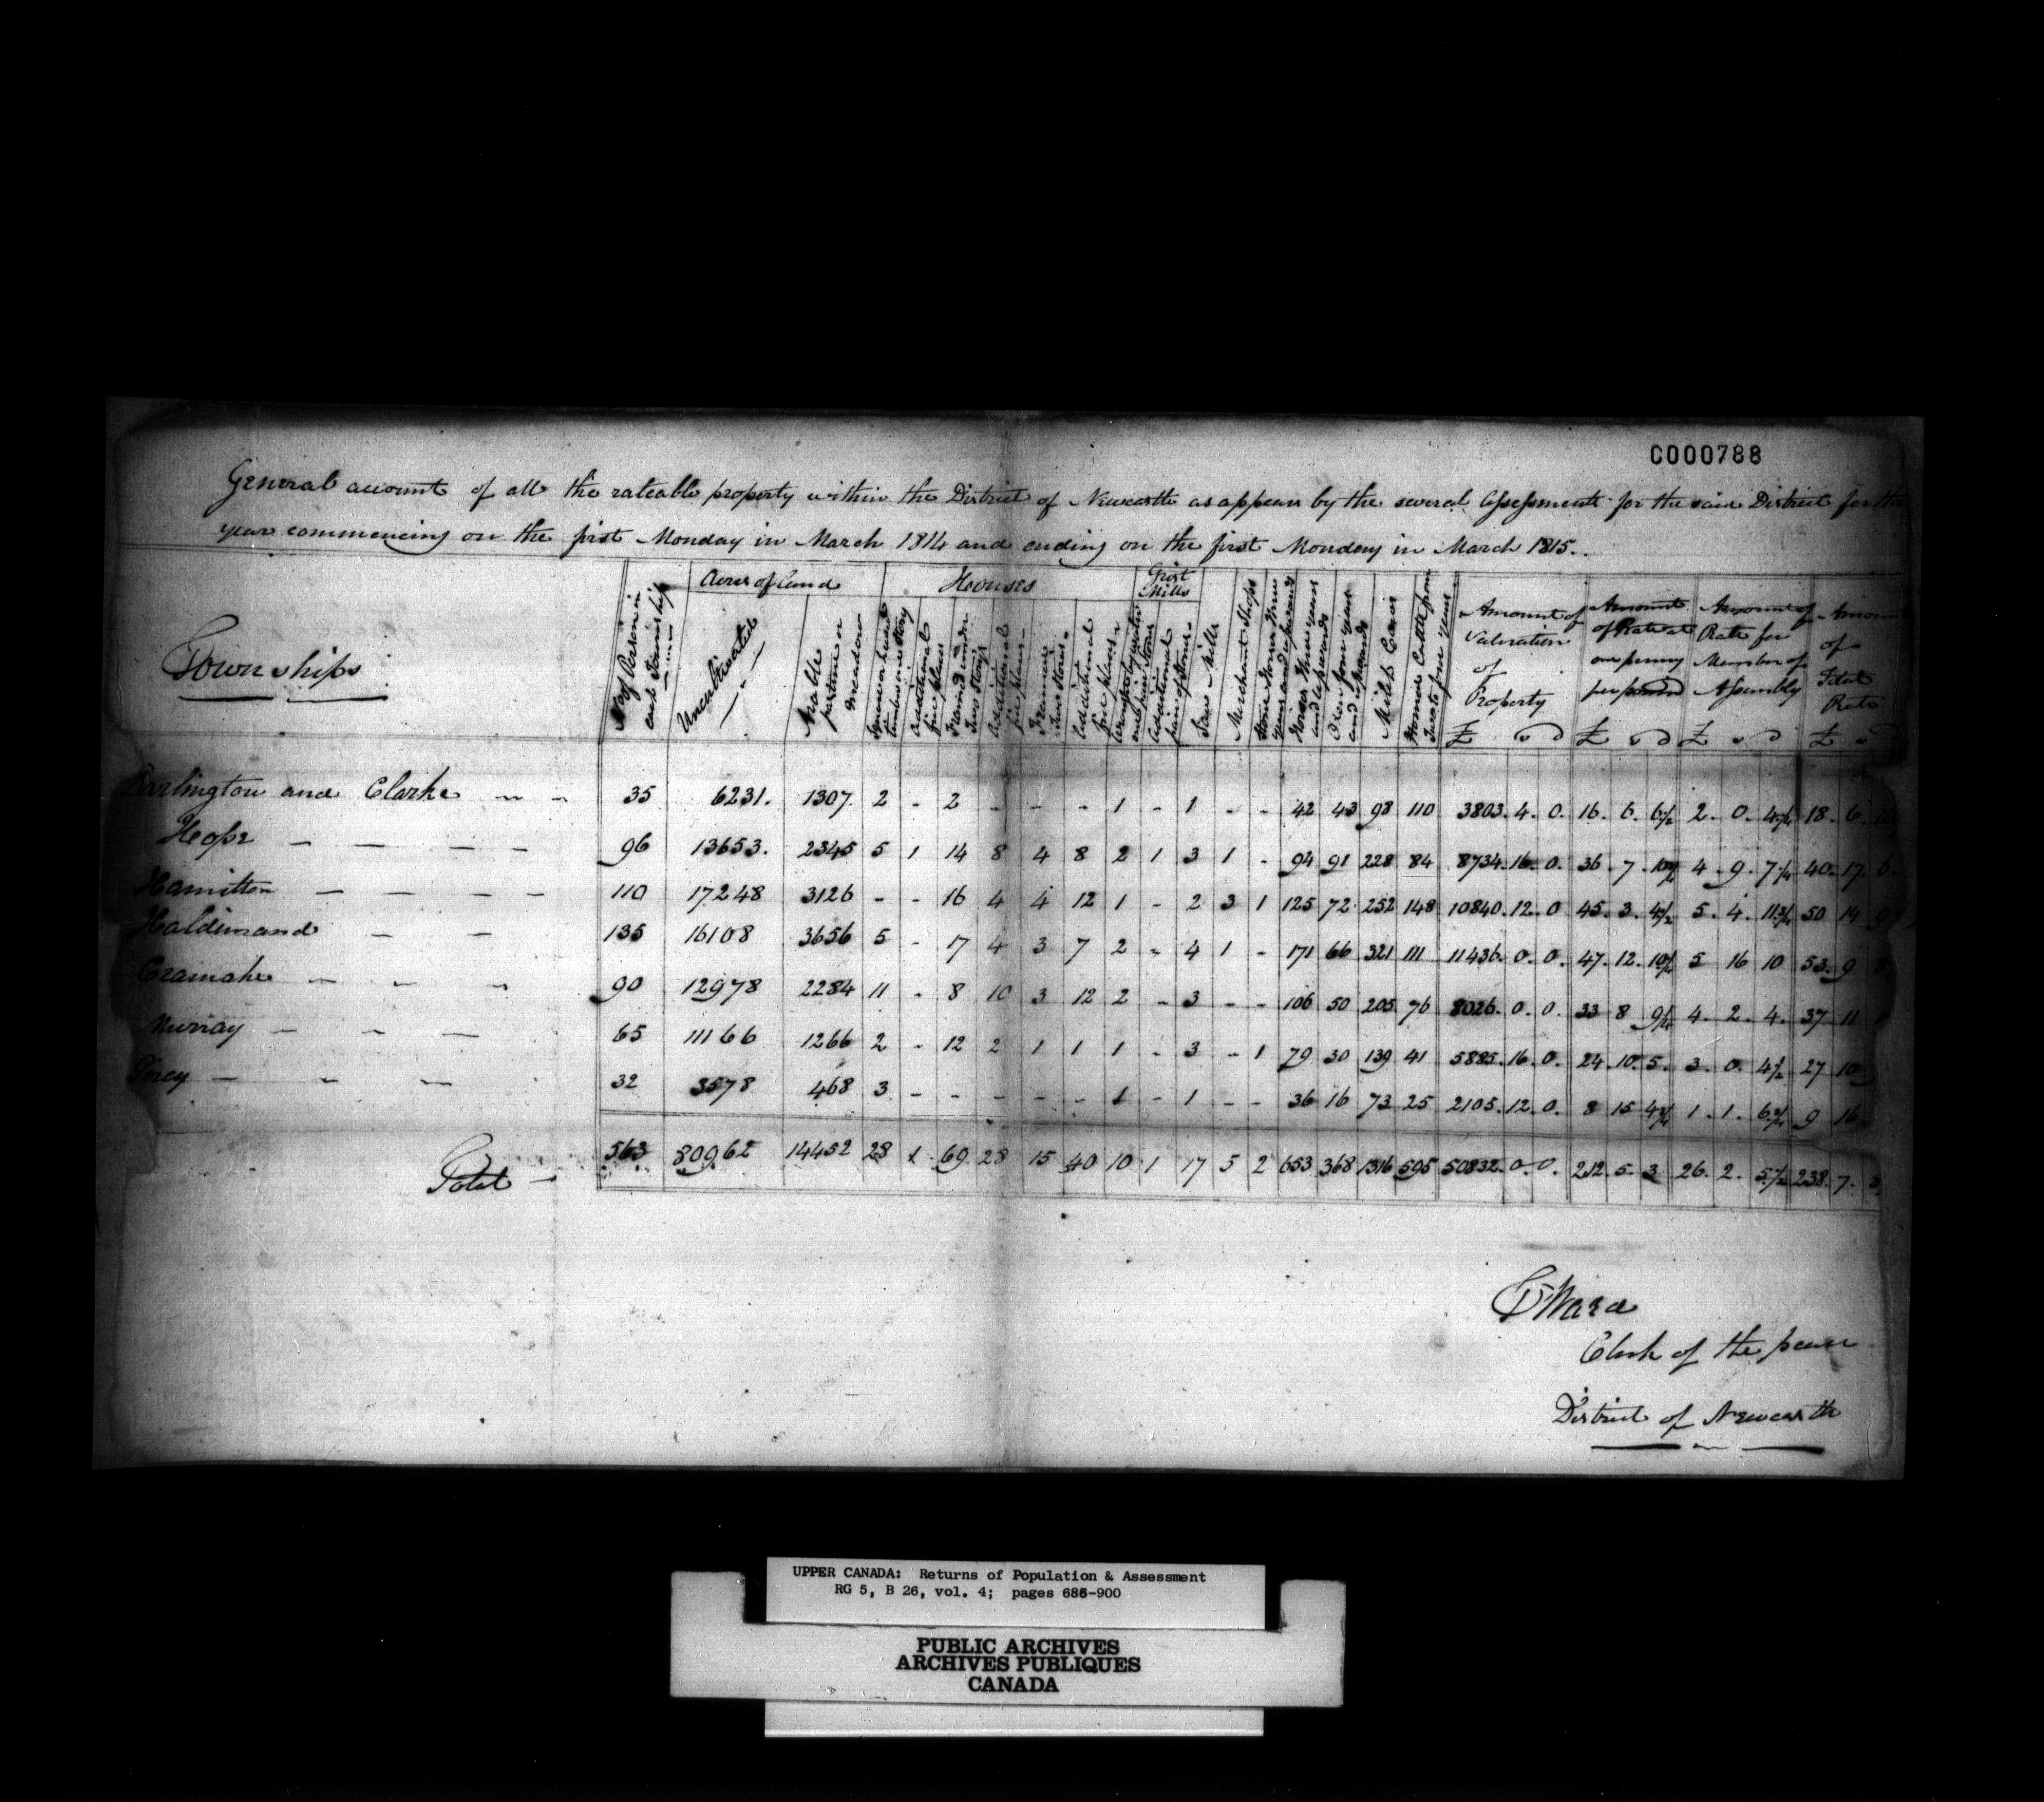 C000788
General account of all the rateable property within the District of Newcastle as appears by the several Assessments for the said District for the
year commencing on the first Monday in March 1814 and ending on the first Monday in March 1815.
Townships
No of Persons in each Township
Acres of Land
Uncultivated
Arable pasture or meadow
Houses
Additional fire places
Framed under Two Storys
Additional fire places
Additional fire places
Grist Mills
Additional pair of stones
Saw Mills
Merchant Shops
Horses three years and upwards
Oxen four years and upwards
Milch Cows
Horned Cattle from Two to four years
Amount of Valuation of Property
£ s D
Amount of Rate at one penny per pound
£ s D
Amount of Rate for Member of Assembly
£ s D
Amount of Total Rate
£ s
Darlington and Clarke 35 6231. 1307 2 - 2 - - - 1 - 1 - - 42 43 98 110 3803. 4. 0. 16. 6. 6½ 2. 0. 18. 6.
Hope 96 13653. 2345 5 1 14 8 4 8 2 1 3 1 - 94 91 228 84 8734. 16. 0. 36. 7. 4. 9. 7¼ 40. 17. 6.
Hamilton 110 17248 3126 - - 16 4 4 12 1 - 2 3 1 125 72 252 148 10840. 12. 0 45. 3. 4½ 5. 4. 11¾ 50 14 9
Haldimand 135 16108 3656 5 - 17 4 3 7 2 - 4 1 - 171 66 321 111 11436. 0. 0. 47. 12. 5 16 10 53. 9
Cramahe 90 12978 2284 11 - 8 10 3 12 2 - 3 - - 106 50 205 76 8026. 0. 0. 33 8 4. 2. 4. 37 11
Murray 65 11166 1266 2 - 12 2 1 1 1 - 3 - 1 79 30 139 41 5885. 16. 0. 24. 10. 5. 3. 0. 4½ 27 10
Percy 32 3578 468 3 - - - - - 1 - 1 - - 36 16 73 25 2105. 12. 0. 8 15 4¾ 1. 1. 9 16
Total 563 80962 14452 28 1 69 28 15 40 10 1 17 5 2 653 368 1316 595 50832. 0. 0. 212. 5. 3 26. 2. 5½ 238. 7.
Ward
Clerk of the peace
District of Newcastle
UPPER CANADA: Returns of Population & Assessment
RG 5, B 26, vol. 4; pages 686-900
PUBLIC ARCHIVES
ARCHIVES PUBLIQUES
CANADA